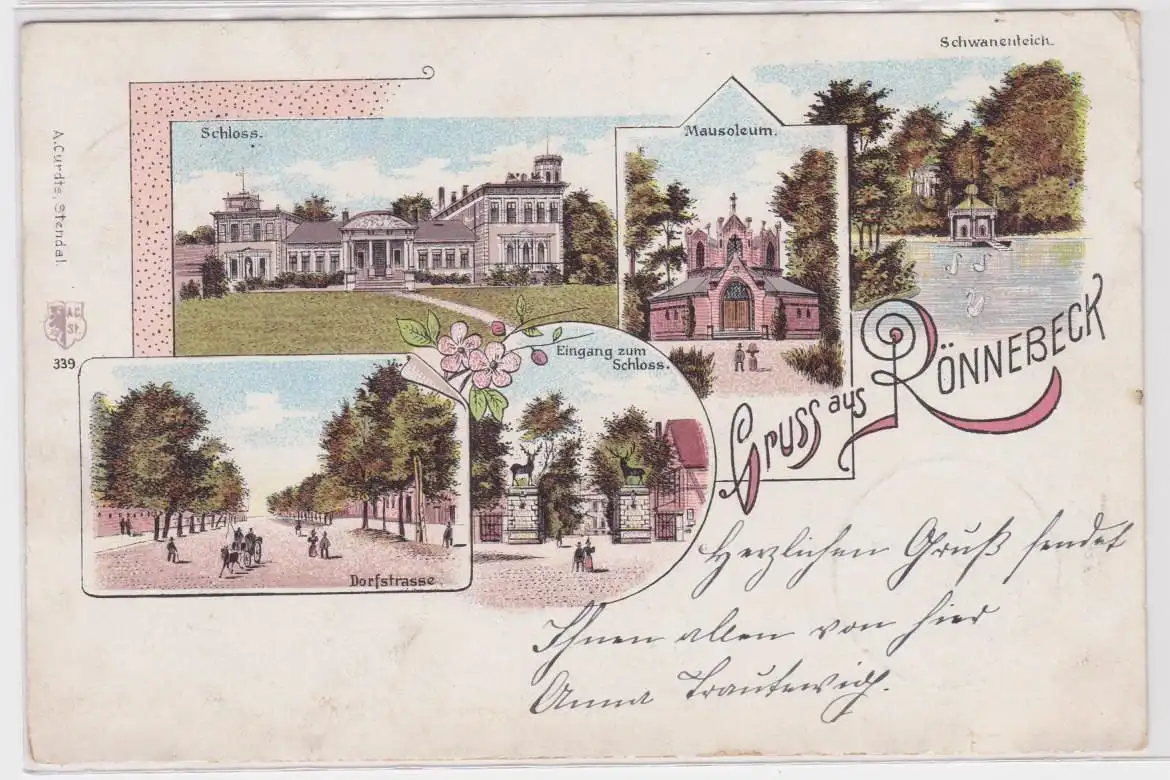 Schwanenteich.
Schloss.
Mausoleum.
A. Curdts, Stendal.
A.C.
St.
339
Eingang zum
Schloss.
Gruss aus RÖNNEBECK
Dorfstrasse.
Herzlichen Gruß sendet
Ihnen allen von hier
Anna